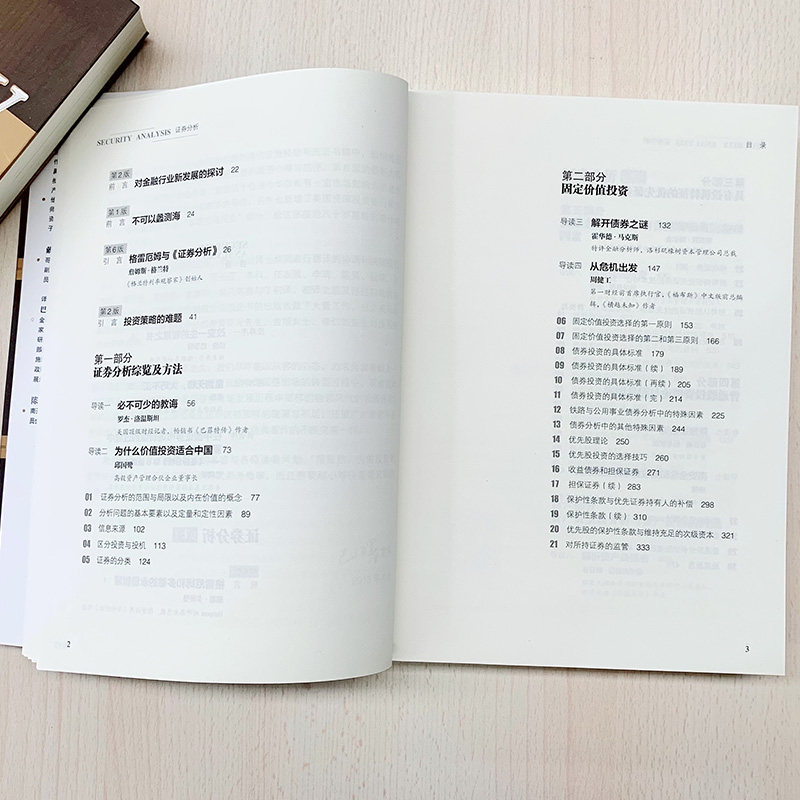 SECURITY ANALYSIS 证券分析
第2版
前言 对金融行业新发展的探讨 22
第1版
前言 不可以蠡测海 24
第6版
引言 格雷厄姆与《证券分析》 26
詹姆斯·格兰特
《格兰特利率观察家》创始人
第2版
引言 投资策略的难题 41
第一部分
证券分析综览及方法
导读一 必不可少的教诲 56
罗杰·洛温斯坦
美国顶级财经记者,畅销书《巴菲特传》作者
导读二 为什么价值投资适合中国 73
邱国鹭
高毅资产管理合伙企业董事长
01 证券分析的范围与局限以及内在价值的概念 77
02 分析问题的基本要素以及定量和定性因素 89
03 信息来源 102
04 区分投资与投机 113
05 证券的分类 124
2
目 录
第二部分
固定价值投资
导读三 解开债券之谜 132
霍华德·马克斯
特许金融分析师,洛杉矶橡树资本管理公司总裁
导读四 从危机出发 147
周健工
第一财经前首席执行官,《福布斯》中文版前总编
辑,《横越未知》作者
06 固定价值投资选择的第一原则 153
07 固定价值投资选择的第二和第三原则 166
08 债券投资的具体标准 179
09 债券投资的具体标准(续) 189
10 债券投资的具体标准(再续) 205
11 债券投资的具体标准(完) 214
12 铁路与公用事业债券分析中的特殊因素 225
13 债券分析中的其他特殊因素 244
14 优先股理论 250
15 优先股投资的选择技巧 260
16 收益债券和担保证券 271
17 担保证券(续) 283
18 保护性条款与优先证券持有人的补偿 298
19 保护性条款(续) 310
20 优先股的保护性条款与维持充足的次级资本 321
21 对所持证券的监管 333
3